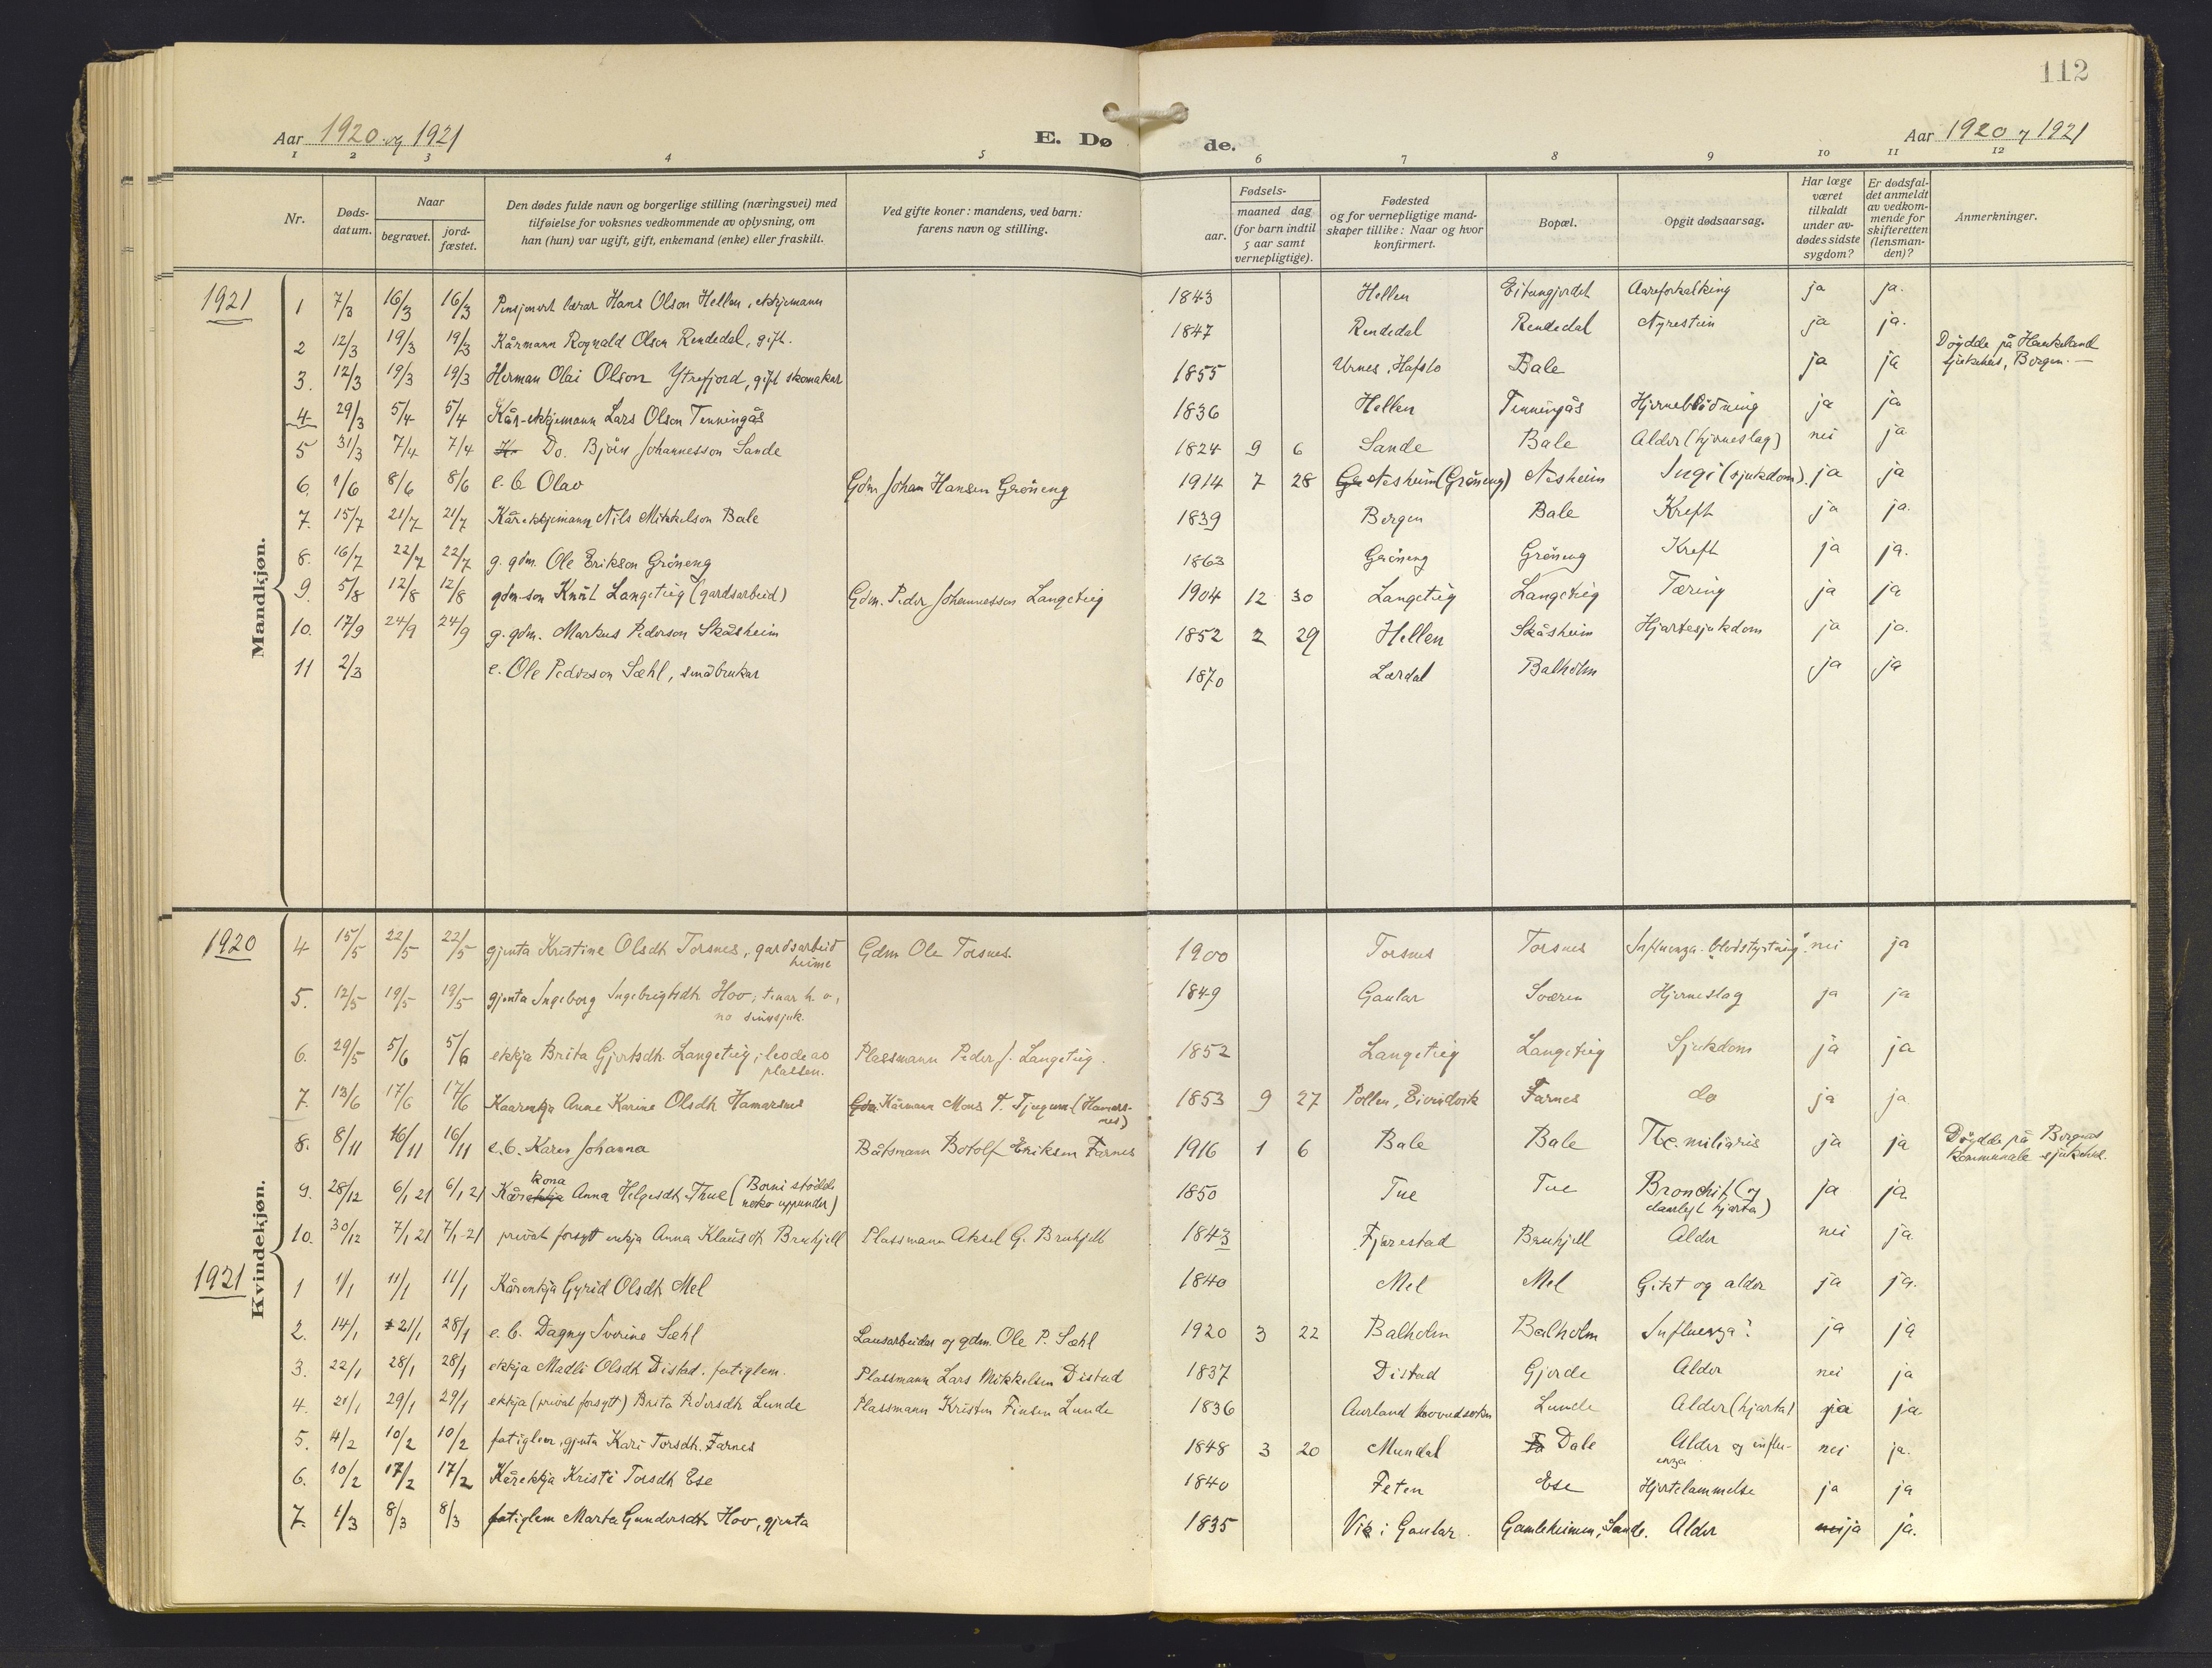 112
Aar 1920 og 1921 E. Dø de. Aar 1920 og 1921
1 2 3 4 5 6 7 8 9 10 11 12
Nr. Døds-datum. Naar begravet. jord-fæstet. Den dødes fulde navn og borgerlige stilling (næringsvei) med tilføielse for voksnes vedkommende av oplysning, om han (hun) var ugift, gift, enkemand (enke) eller fraskilt. Ved gifte koner: mandens, ved barn: farens navn og stilling. Fødsels- aar. maaned dag (for barn indtil 5 aar samt vernepligtige). Fødested og for vernepligtige mand-skaper tillike: Naar og hvor konfirmert. Bopæl. Opgit dødsaarsag. Har læge været tilkaldt under av-dødes sidste sygdom? Er dødsfal-det anmeldt av vedkom-mende for skifteretten (lensman-den)? Anmerkninger.
Mandkjøn.
1921 1 7/3 16/3 16/3 Pensjonert lærar Hans Olson Hellen, ekkjemann 1843 Hellen Eitungjordet Aareforkalking ja ja.
2 12/3 19/3 19/3 Kårmann Rognald Olson Rendedal, gift. 1847 Rendedal Rendedal Nyrestein ja ja.
3. 12/3 19/3 19/3 Herman Olai Olson Ytrefjord, gift skomakar 1855 Urnes, Hafslo Bale ja ja Døydde på Haukeland sjukehus, Bergen. —
4 29/3 5/4 5/4 Kår-ekkjemann Lars Olson Tenningås 1836 Hellen Tenningås Hjerneblödning ja ja
5 31/3 7/4 7/4 Do. Björn Johannesson Sande 1824 9 6 Sande Bale Alder (hjerneslag) nei ja
6. 1/6 8/6 8/6 e. b. Olav Gdm Johan Hansen Gröneng 1914 7 28 Nesheim (Gröneng) Nesheim Ingi (sjukdom). ja ja
7. 15/7 21/7 21/7 Kårekkjemann Nils Mikkelson Bale 1839 Bergen Bale Kreft ja ja.
8. 16/7 22/7 22/7 g. gdm. Ole Erikson Gröneng 1863 Gröneng Gröneng Kreft ja ja.
9. 5/8 12/8 12/8 gdm-son Knut Langeteig (gardsarbeid) Gdm. Peder Johannesson Langeteig 1904 12 30 Langeteig Langeteig Tæring ja ja
10. 17/9 24/9 24/9 g. gdm. Markus Pederson Skåsheim 1852 2 29 Hellen Skåsheim Hjartesjukdom ja ja.
11 2/3 e. Ole Pederson Sæhl, småbrukar 1870 Lærdal Balholm ja ja
Kvindekjøn.
1920 4 15/5 22/5 22/5 gjenta Kristine Olsdtr Torsnes, gardsarbeid heime Gdm Ole Torsnes. 1900 Torsnes Torsnes Influenza - blodstyrtning nei ja
5. 12/5 19/5 19/5 gjenta Ingeborg Ingebrigtsdtr Hov; tenar h. o., no sinnsjuk. 1849 Gaular Sværen Hjerneslag ja ja
6. 29/5 5/6 5/6 ekkja Brita Gjertsdtr. Langeteig; levde av plassen. Plassmann Peder J. Langeteig. 1852 Langeteig Langeteig Sjukdom ja ja
7. 13/6 17/6 17/6 Kaarenkja Anne Karine Olsdtr Hamarsnes Gdm Kårmann Mons T. Tjugum (Hamars-nes) 1853 9 27 Pollen, Eivindvik Farnes do ja ja
8. 8/11 16/11 16/11 e. b. Karen Johanna Båtsmann Botolf Eriksen Farnes 1916 1 6 Bale Bale Tbc. miliaris ja ja Döydde på Bergens kommunale sjukehus.
9. 28/12 6/1 21 6/1 21 Kårekkja kona Anna Helgesdtr Thue (Borni stödde noko uppunder) 1850 Tue Tue Bronchit (og daarlegt hjarta) ja ja
10. 30/12 7/1 21 7/1-21 privat forsytt enkja Anna Klausdtr Bruhjell Plassmann Aksel G. Bruhjell 1843 Fjærestad Bruhjell Alder nei ja
1921 1 1/1 11/1 11/1 Kårenkja Gyrid Olsdtr Mel 1840 Mel Mel Gikt og alder ja ja.
2. 14/1 21/1 28/1 e. b. Dagny Sverine Sæhl Lausarbeider og gdm. Ole P. Sæhl 1920 3 22 Balholm Balholm Influenza? ja ja
3. 22/1 28/1 28/1 ekkja Madli Olsdtr Distad. fatiglem. Plassmann Lars Mikkelsen Distad 1837 Distad Gjerde Alder nei ja
4. 21/1 29/1 29/1 ekkja (privat forsytt) Brita Pedersdtr Lunde Plassmann Kristen Finsen Lunde 1836 Aurland hovudsokn Lunde Alder (hjarta) ja ja
5. 4/2 10/2 10/2 fatiglem, gjenta Kari Torsdtr. Farnes 1848 3 20 Mundal Dale Alder og influ-enza nei ja.
6. 10/2 17/2 17/2 Kårekkja Kristi Torsdtr Ese 1840 Feten Ese Hjertelammelse ja ja
7. 1/3 8/3 8/3 fatiglem Marta Gundersdtr Hov, gjenta 1835 Vik i Gaular. Gamleheimen, Sande. Alder nei ja ja.